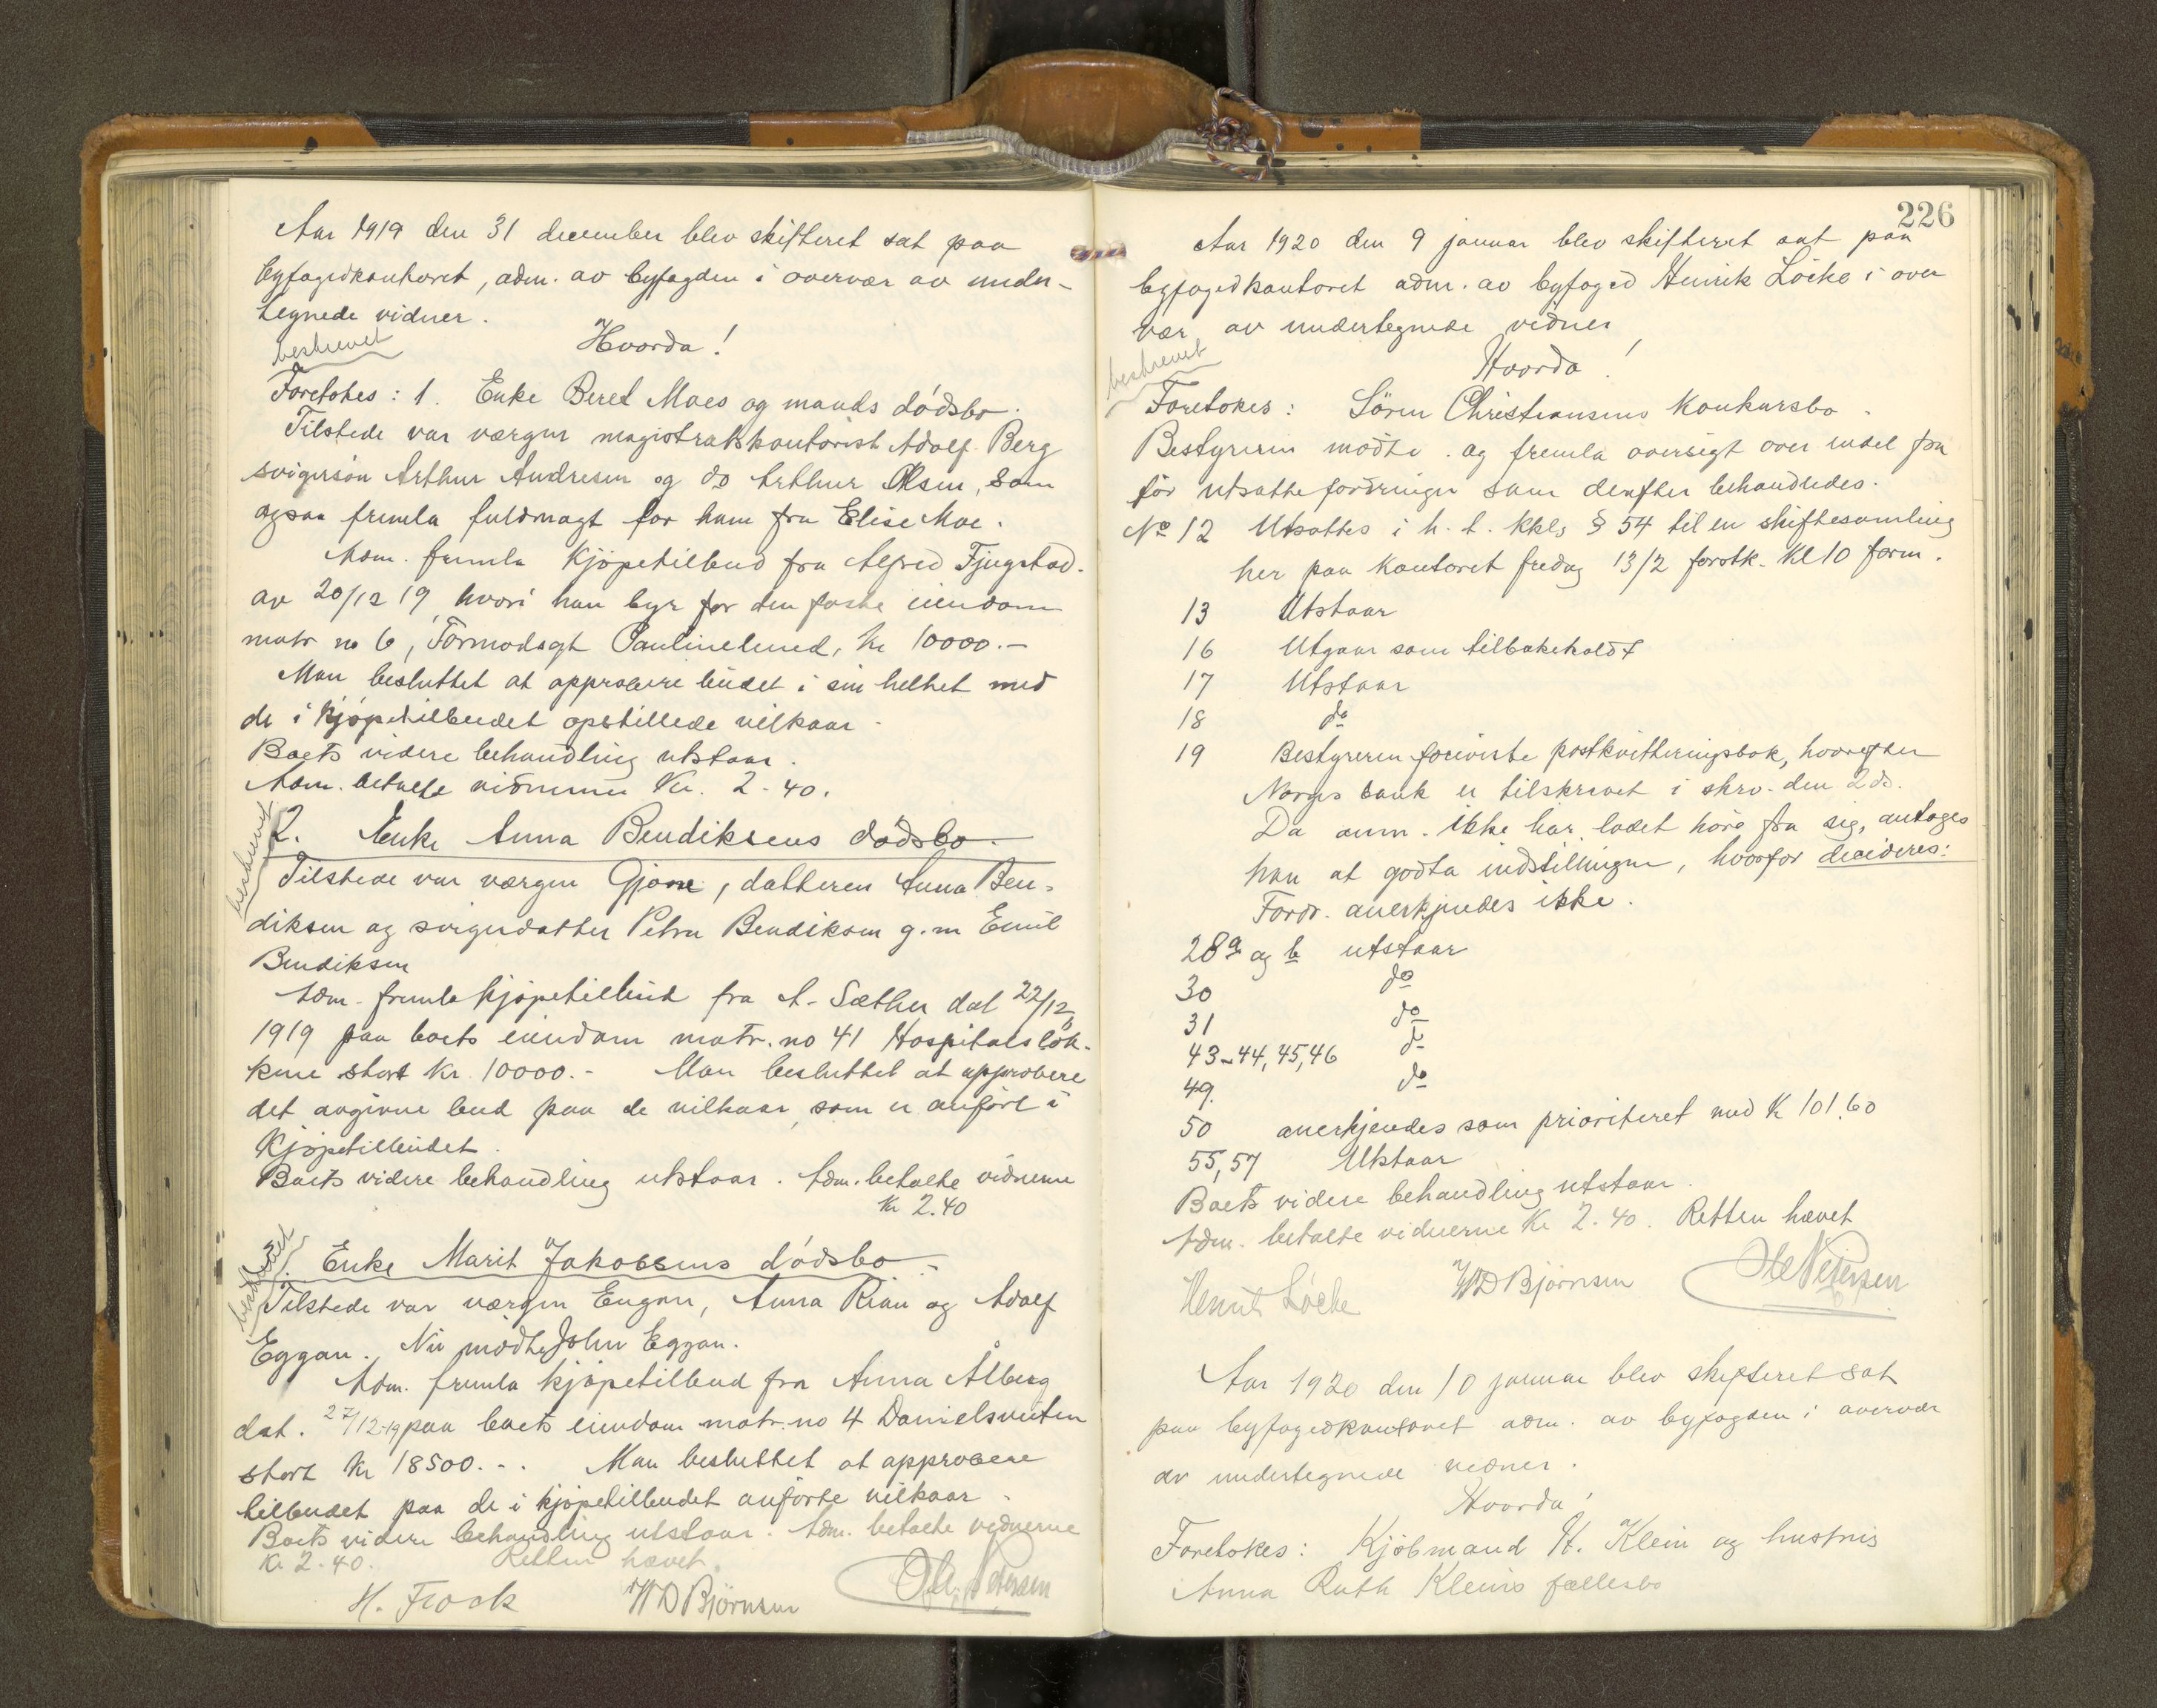 Aar 1919 den 31 december blev skifteret sat paa
byfogedkontoret, adm. av byfogden i overvær av under-
tegnede vidner.
beskrevet
Hvorda!
Foretokes: 1. Enke Beret Moes og mands dödsbo.
Tilstede var værgen magistratskontorist Adolf Berg
svigersön Arthur Andresen og do Arthur Olsen, som
ogsaa fremla fuldmagt for ham fra Elise Moe.
Adm. fremla kjöpetilbud fra Alfred Fjugstad.
av 20/12 19 hvori han byr for den faste eiendom
matr no 6, Tormodsgt Paulinelund, kr 10000.-
Man besluttet at approbere budet i sin helhet med
de i kjöpetilbudet opstillede vilkaar.
Boets videre behandling utstaar.
Adm. betalte vidnerne Kr. 2.40.
beskrevet
2. Enke Anna Bendiksens dödsbo.
Tilstede var værgen Gjone, datteren Anna Ben-
diksen og svigerdatter Petra Bendiksen g.m Emil
Bendiksen
Adm. fremla kjöpetilbud fra A. Sæther dat 22/12
1919 paa boets eiendom matr. no 41 Hospitalslök-
kene stort kr. 10000.- Man besluttet at approbere
det avgivne bud paa de vilkaar som er anfört i
Kjöpetilbudet.
Boets videre behandling utstaar. Adm. betalte vidnerne
Kr 2.40
beskrevet
3. Enke Marit Jakobsens dödsbo.
Tilstede var værgen Engan, Anna Rian og Adolf
Eggan. Nu mödte John Eggan.
Adm. fremla kjöpetilbud fra Anna Ålberg
dat. 27/12-19 paa boets eiendom matr. no 4 Danielsveiten
stort kr 18500.-. Man besluttet at approbere
tilbudet paa de i kjöpetilbudet anförte vilkaar.
Boets videre behandling utstaar. Adm. betalte vidnerne
Kr 2.40. Retten hævet.
WD Björnsen Ole Petersen
226
Aar 1920 den 9 januar blev skifteret sat paa
byfogedkontoret adm. av byfoged Henrik Löcke i over
vær av undertegnede vidner
beskrevet
Hvorda!
Foretokes: Sören Christiansens Konkursbo.
Bestyreren mödte og fremla oversigt over endel fra
för utsatte fordringer som derefter behandledes.
No 12 Utsattes i h. t. kkls § 54 til en skiftesamling
her paa Kontoret fredag 13/2 førstk. Kl 10 form.
13 Utstaar
16 Utgaar som tilbakekaldt
17 Utstaar
18 do
19 Bestyreren foreviste postkvitteringsbok, hvorefter
Norges bank er tilskrevet i skrv. den 2 ds.
Da anm. ikke har ladet höre fra sig, antages
han at godta indstillingen, hvorfor decideres:
Fordr. anerkjendes ikke.
28 a og b utstaar
30 do
31 do
43-44, 45, 46 do
49. do
50 anerkjendes som prioriteret med Kr 101.60
55, 57 Utstaar
Boets videre behandling utstaar.
Adm. betalte vidnerne Kr 2.40. Retten hævet
Henrik Löcke WD Björnsen Ole Petersen
Aar 1920 den 10 januar blev skifteret sat
paa byfogedkontoret adm. av byfogden i overvær
av undertegnede vidner.
Hvorda!
Foretokes: Kjöbmand H. Klein og hustrus
Anna Ruth Kleins fællesbo